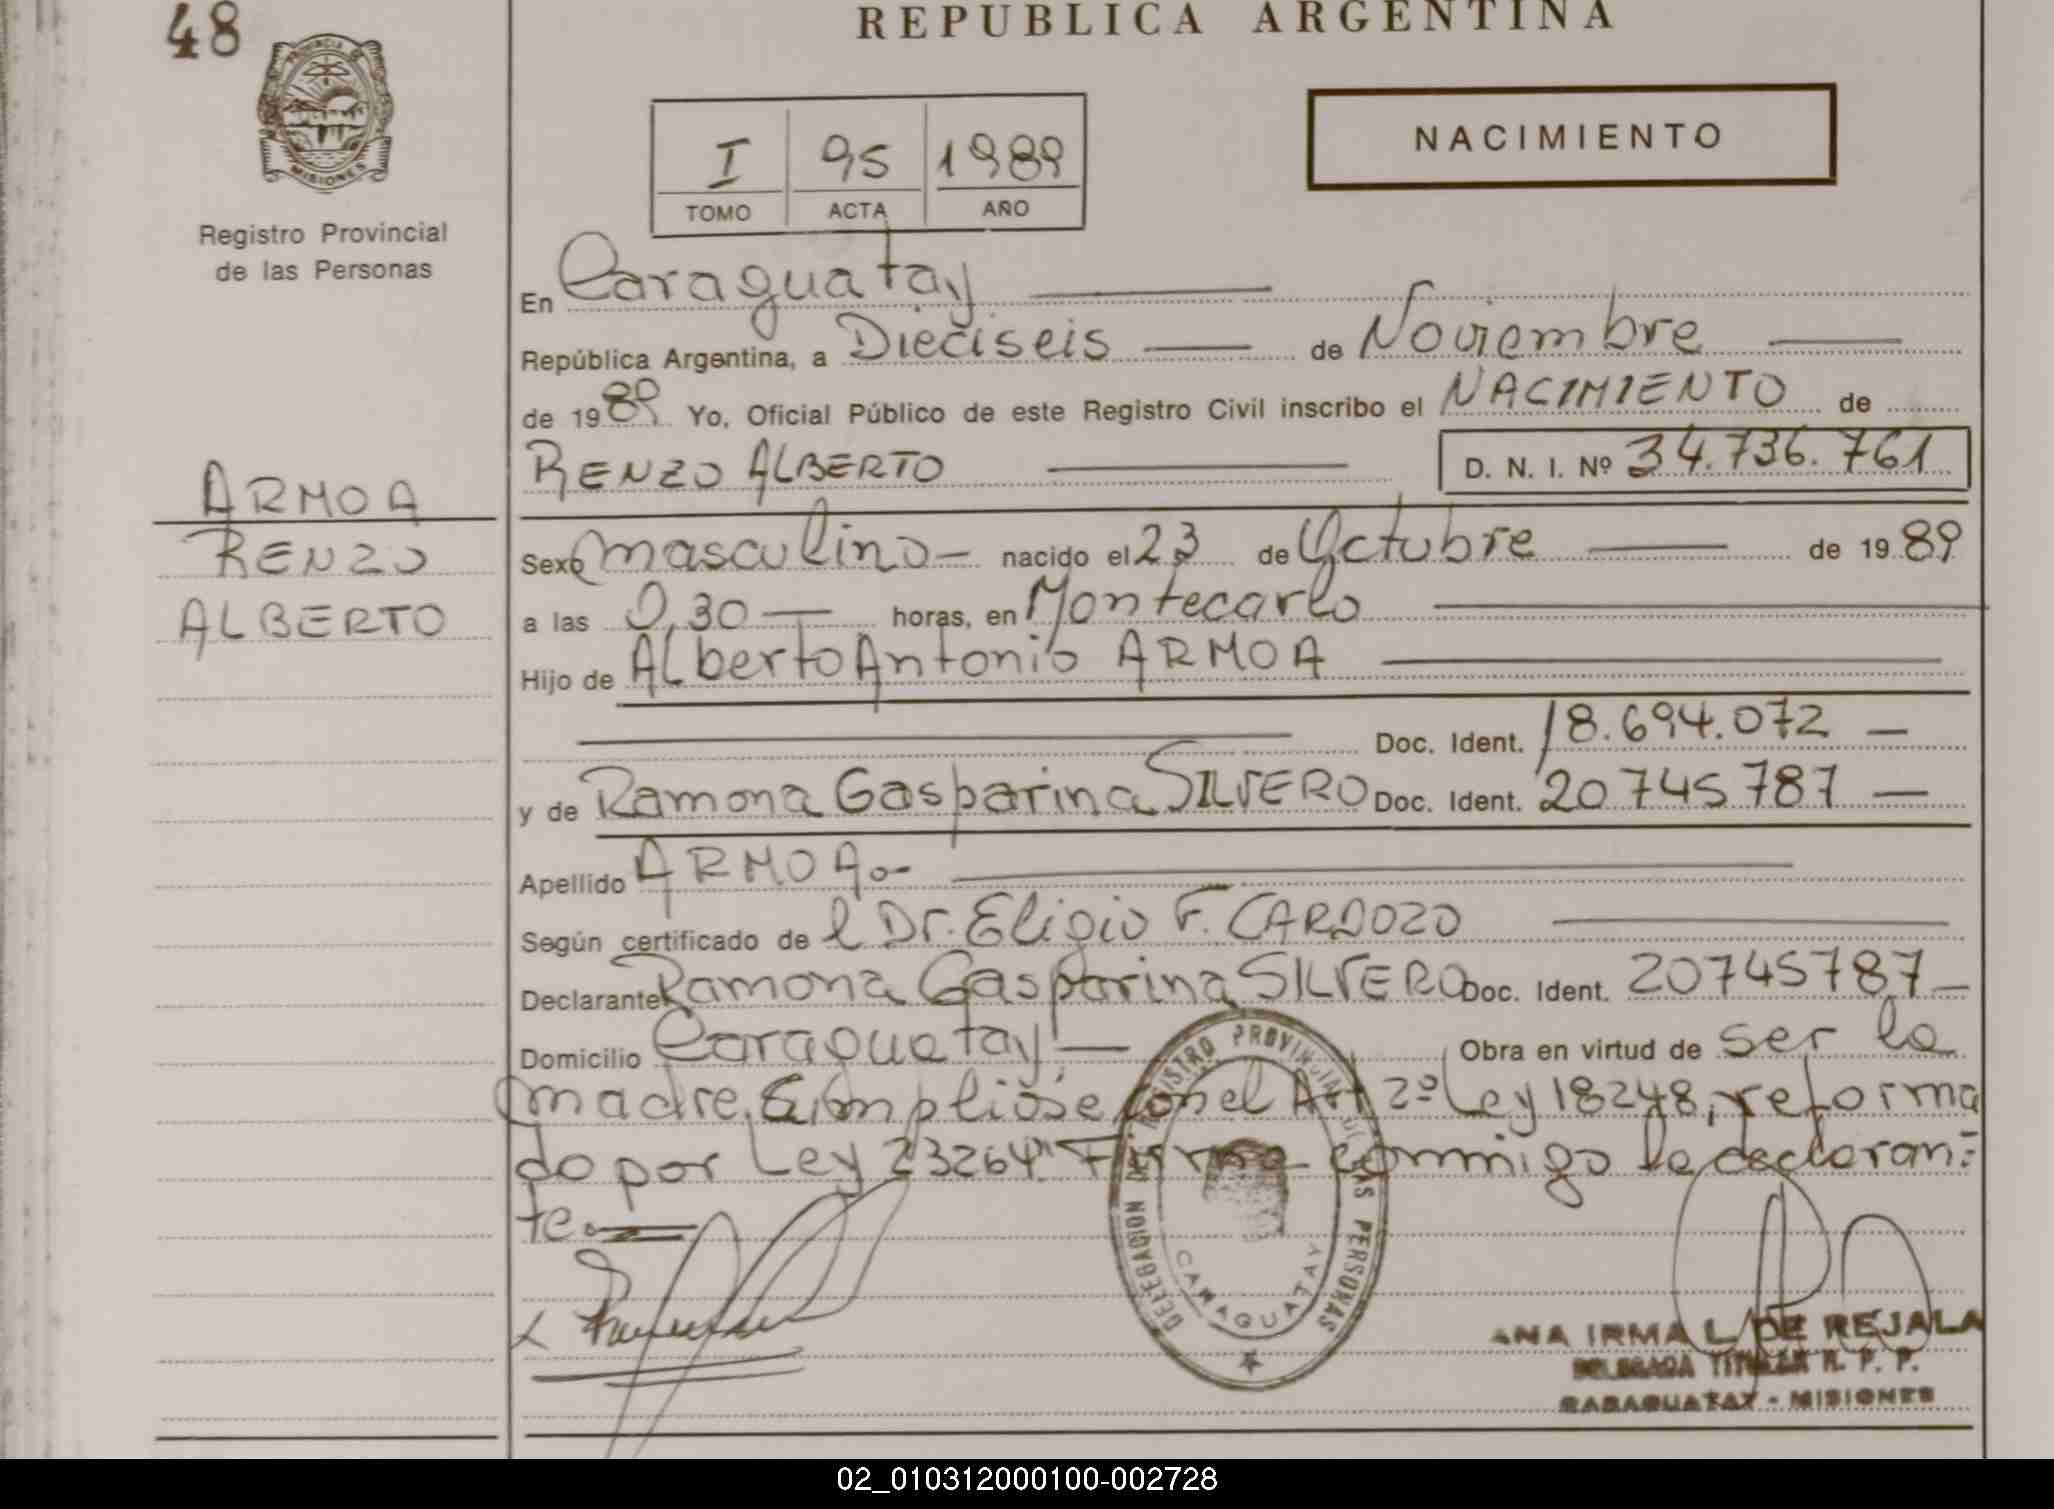 48
REPUBLICA ARGENTINA
PROVINCIA DE
MISIONES
NACIMIENTO
I 95 1989
TOMO ACTA AÑO
Registro Provincial
de las Personas
En Caraguatay
República Argentina, a Dieciseis de Noviembre
de 1989 Yo, Oficial Público de este Registro Civil inscribo el NACIMIENTO de
RENZO ALBERTO D. N. I. Nº 34.736.761
ARMOA
RENZO
ALBERTO
Sexo masculino nacido el 23 de Octubre de 1989
a las 0,30 horas, en Montecarlo
Hijo de Alberto Antonio ARMOA
Doc. Ident. 18.694.072
y de Ramona Gasparina SILVERO Doc. Ident. 20745787
Apellido ARMOA.-
Según certificado de l Dr. Eligio F. CARDOZO
Declarante Ramona Gasparina SILVERO Doc. Ident. 20745787
Domicilio Caraguatay Obra en virtud de ser la
madre. Cúmplióse con el Art 2º Ley 18248, reforma
do por Ley 23264. Firma conmigo la declaran=
te.
DELEGACION DEL REGISTRO PROVINCIAL DE LAS PERSONAS
CARAGUATAY
ANA IRMA L. DE REJALA
DELEGADA TITULAR R. P. P.
CARAGUATAY - MISIONES
02_010312000100-002728